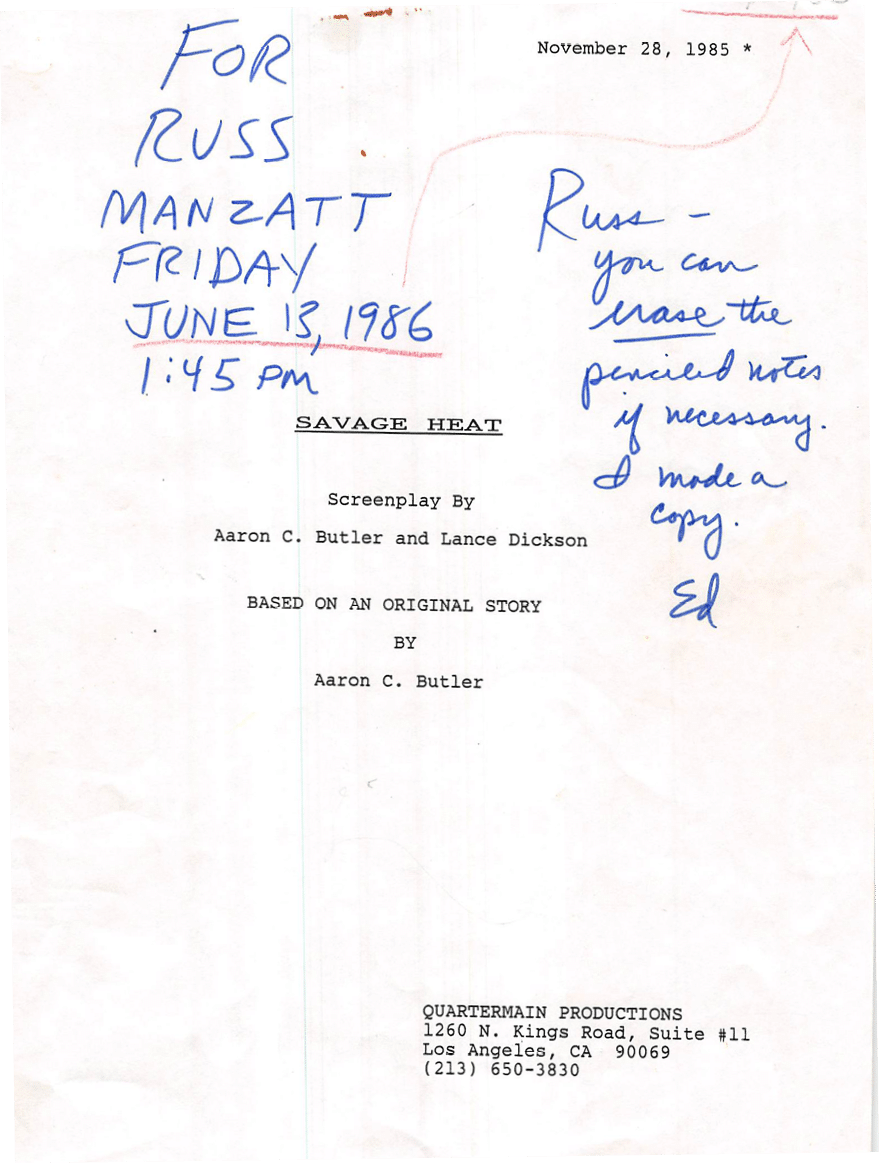 November 28, 1985 *
FOR
RUSS
MANZATT
FRIDAY
JUNE 13, 1986
1:45 PM
Russ –
you can
erase the
penciled notes
if necessary.
I made a
copy.
Ed
SAVAGE HEAT
Screenplay By
Aaron C. Butler and Lance Dickson
BASED ON AN ORIGINAL STORY
BY
Aaron C. Butler
QUARTERMAIN PRODUCTIONS
1260 N. Kings Road, Suite #11
Los Angeles, CA 90069
(213) 650-3830